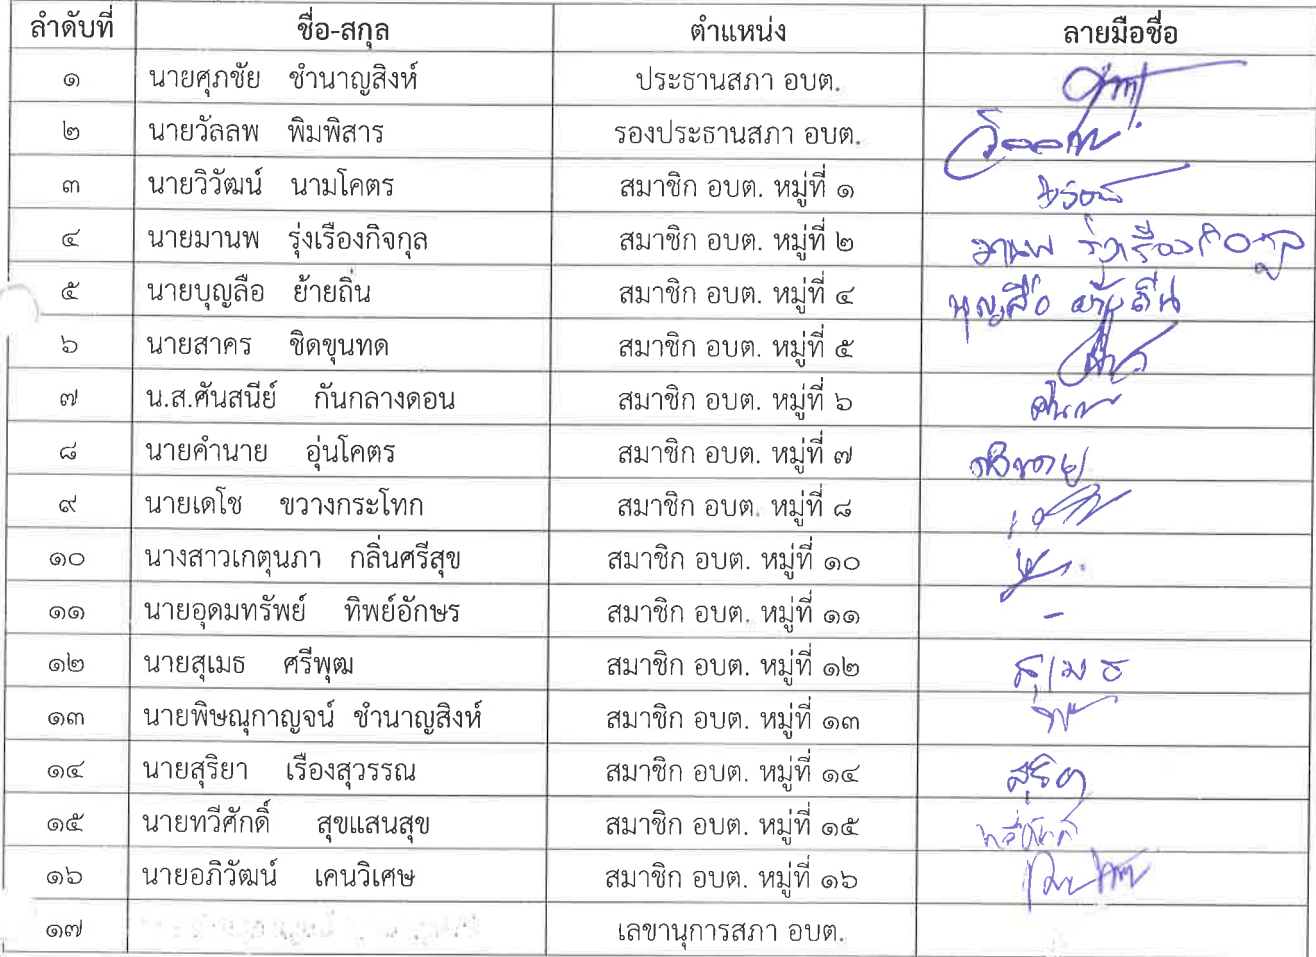 ลำดับที่ ชื่อ-สกุล ตำแหน่ง ลายมือชื่อ
๑ นายศุภชัย ชำนาญสิงห์ ประธานสภา อบต.
๒ นายวัลลพ พิมพิสาร รองประธานสภา อบต.
๓ นายวิวัฒน์ นามโคตร สมาชิก อบต. หมู่ที่ ๑
๔ นายมานพ รุ่งเรืองกิจกุล สมาชิก อบต. หมู่ที่ ๒ มานพ รุ่งเรืองกิจกุล
๕ นายบุญลือ ย้ายถิ่น สมาชิก อบต. หมู่ที่ ๔ บุญลือ ย้ายถิ่น
๖ นายสาคร ชิดขุนทด สมาชิก อบต. หมู่ที่ ๕
๗ น.ส.ศันสนีย์ กันกลางดอน สมาชิก อบต. หมู่ที่ ๖
๘ นายคำนาย อุ่นโคตร สมาชิก อบต. หมู่ที่ ๗ คำนาย
๙ นายเดโช ขวางกระโทก สมาชิก อบต. หมู่ที่ ๘
๑๐ นางสาวเกตุนภา กลิ่นศรีสุข สมาชิก อบต. หมู่ที่ ๑๐
๑๑ นายอุดมทรัพย์ ทิพย์อักษร สมาชิก อบต. หมู่ที่ ๑๑ -
๑๒ นายสุเมธ ศรีพุฒ สมาชิก อบต. หมู่ที่ ๑๒ สุเมธ
๑๓ นายพิษณุกาญจน์ ชำนาญสิงห์ สมาชิก อบต. หมู่ที่ ๑๓
๑๔ นายสุริยา เรืองสุวรรณ สมาชิก อบต. หมู่ที่ ๑๔
๑๕ นายทวีศักดิ์ สุขแสนสุข สมาชิก อบต. หมู่ที่ ๑๕ ทวีศักดิ์
๑๖ นายอภิวัฒน์ เคนวิเศษ สมาชิก อบต. หมู่ที่ ๑๖
๑๗ เลขานุการสภา อบต.